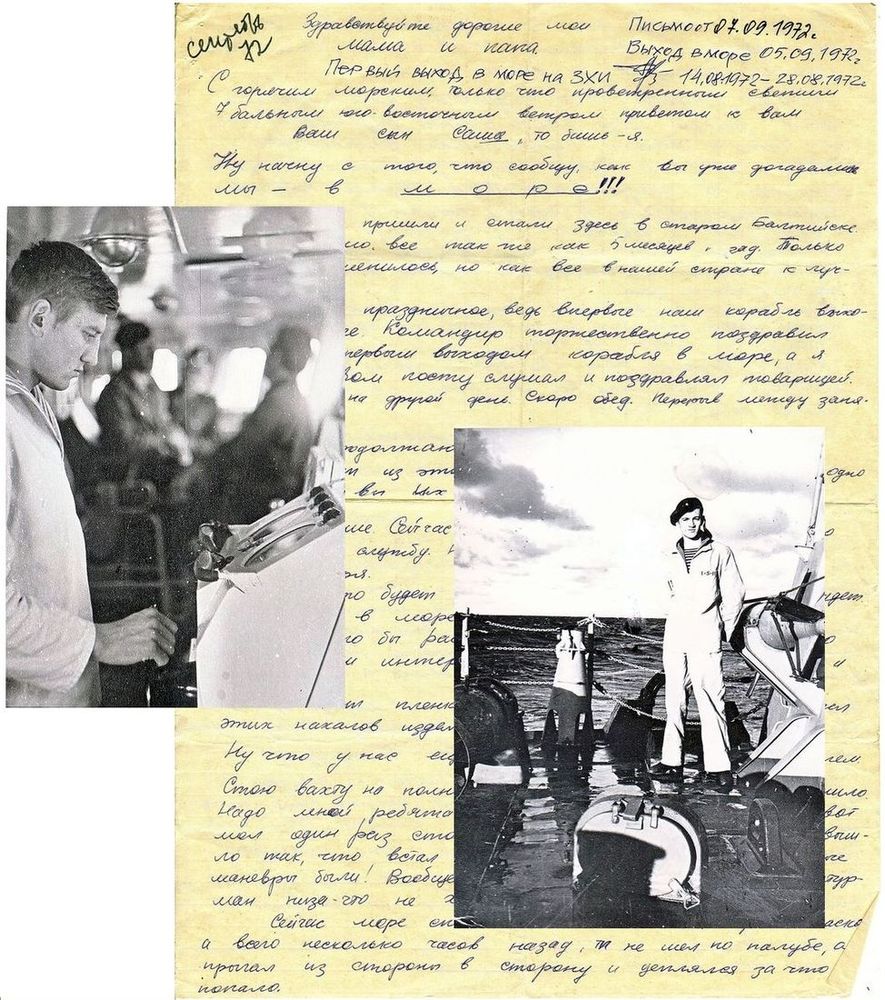 сентябрь 72
Здравствуйте дорогие мои
мама и папа
Письмо от 07.09.1972г
Выход в море 05.09.1972г
Первый выход в море на ЗХИ 14.08.1972-28.08.1972г
С горячим морским, только что проветренным свежим
7 бальным юго-восточным ветром приветом к вам
Ваш сын Саша, то бишь-я.
Ну начну с того, что сообщу, как вы уже догадались
мы - в море!!!
пришли и стали здесь в старом Балтийске.
все так же как 5 месяцев назад. Только
но как все в нашей стране к луч-
праздничное, ведь впервые наш корабль выхо-
Командир торжественно поздравил
первым выходом корабля в море, а я
посту слушал и поздравлял товарищей.
на другой день. Скоро обед. Перерыв между заня-
из эти
одно
вы их
Сейчас
службу.
то будет
в море
бы
и интер
пленк
этих нахалов изда
Ну что у нас ещ
Стою вахту на полн
Надо мной ребята
вот
мол один раз сто
выш-
ло так, что встал
маневры были! Вообще
тур-
ман низа-что не х
Сейчас море сп
а всего несколько часов назад, я не шел по палубе, а
прыгал из стороны в сторону и цеплялся за что
попало.